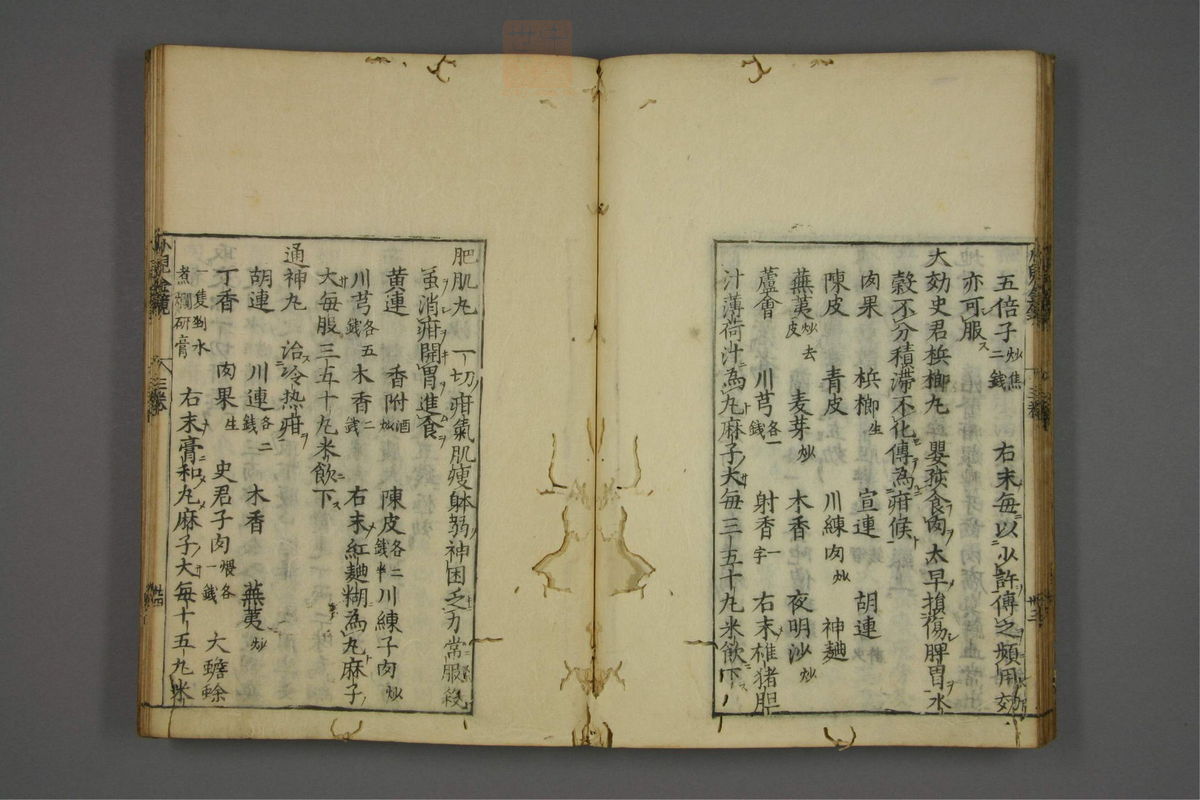 五倍子炒焦二錢 右末毎以少許傳之頻用効
亦可服ス
大効史君梹榔丸 嬰孩食肉太早損傷脾胃水
穀不分積滯不化傳為疳候
肉果 梹榔生 宣連 胡連
陳皮 青皮 川練肉炒 神麯
蕪荑炒去皮 麦芽炒 木香 夜明沙炒
蘆會 川芎各一錢 射香一字 右末椎猪胆
汁薄荷汁為丸麻子大毎三五十丸米飲下
肥肌丸 一切疳氣肌瘦躰弱神困乏力常服殺
虽消疳開胃進食
黄連 香附酒炒 陳皮各二錢半 川練子肉炒
川芎各五錢 木香二錢 右末紅麯糊為丸麻子
大毎服三五十丸米飲下
通神丸 治冷热疳
胡連 川連各二錢 木香 蕪荑炒
丁香 肉果生 史君子肉煨各一錢 大蟾蜍
一隻剉水煮爛研膏 右末膏和丸麻子大毎十五丸米
小児